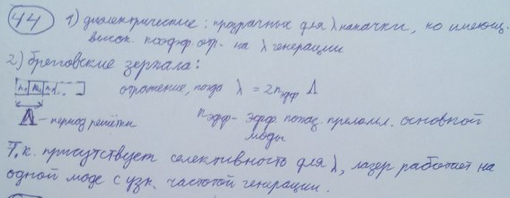 44 1) диэлектрические: прозрачные для λ накачки, но имеющ.
высок. коэфф. отр. на λ генерации
2) брегговские зеркала:
n₁ n₂ n₁ ... отражение, когда λ = 2nэфф Λ
Λ - период решётки nэфф - эфф. показ. преломл. основной
моды
Т.к. присутствует селективность для λ, лазер работает на
одной моде с узк. частотой генерации.